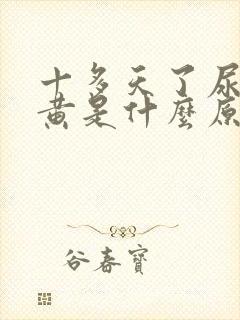 十多天了尿
黄是什麼原
谷春寶